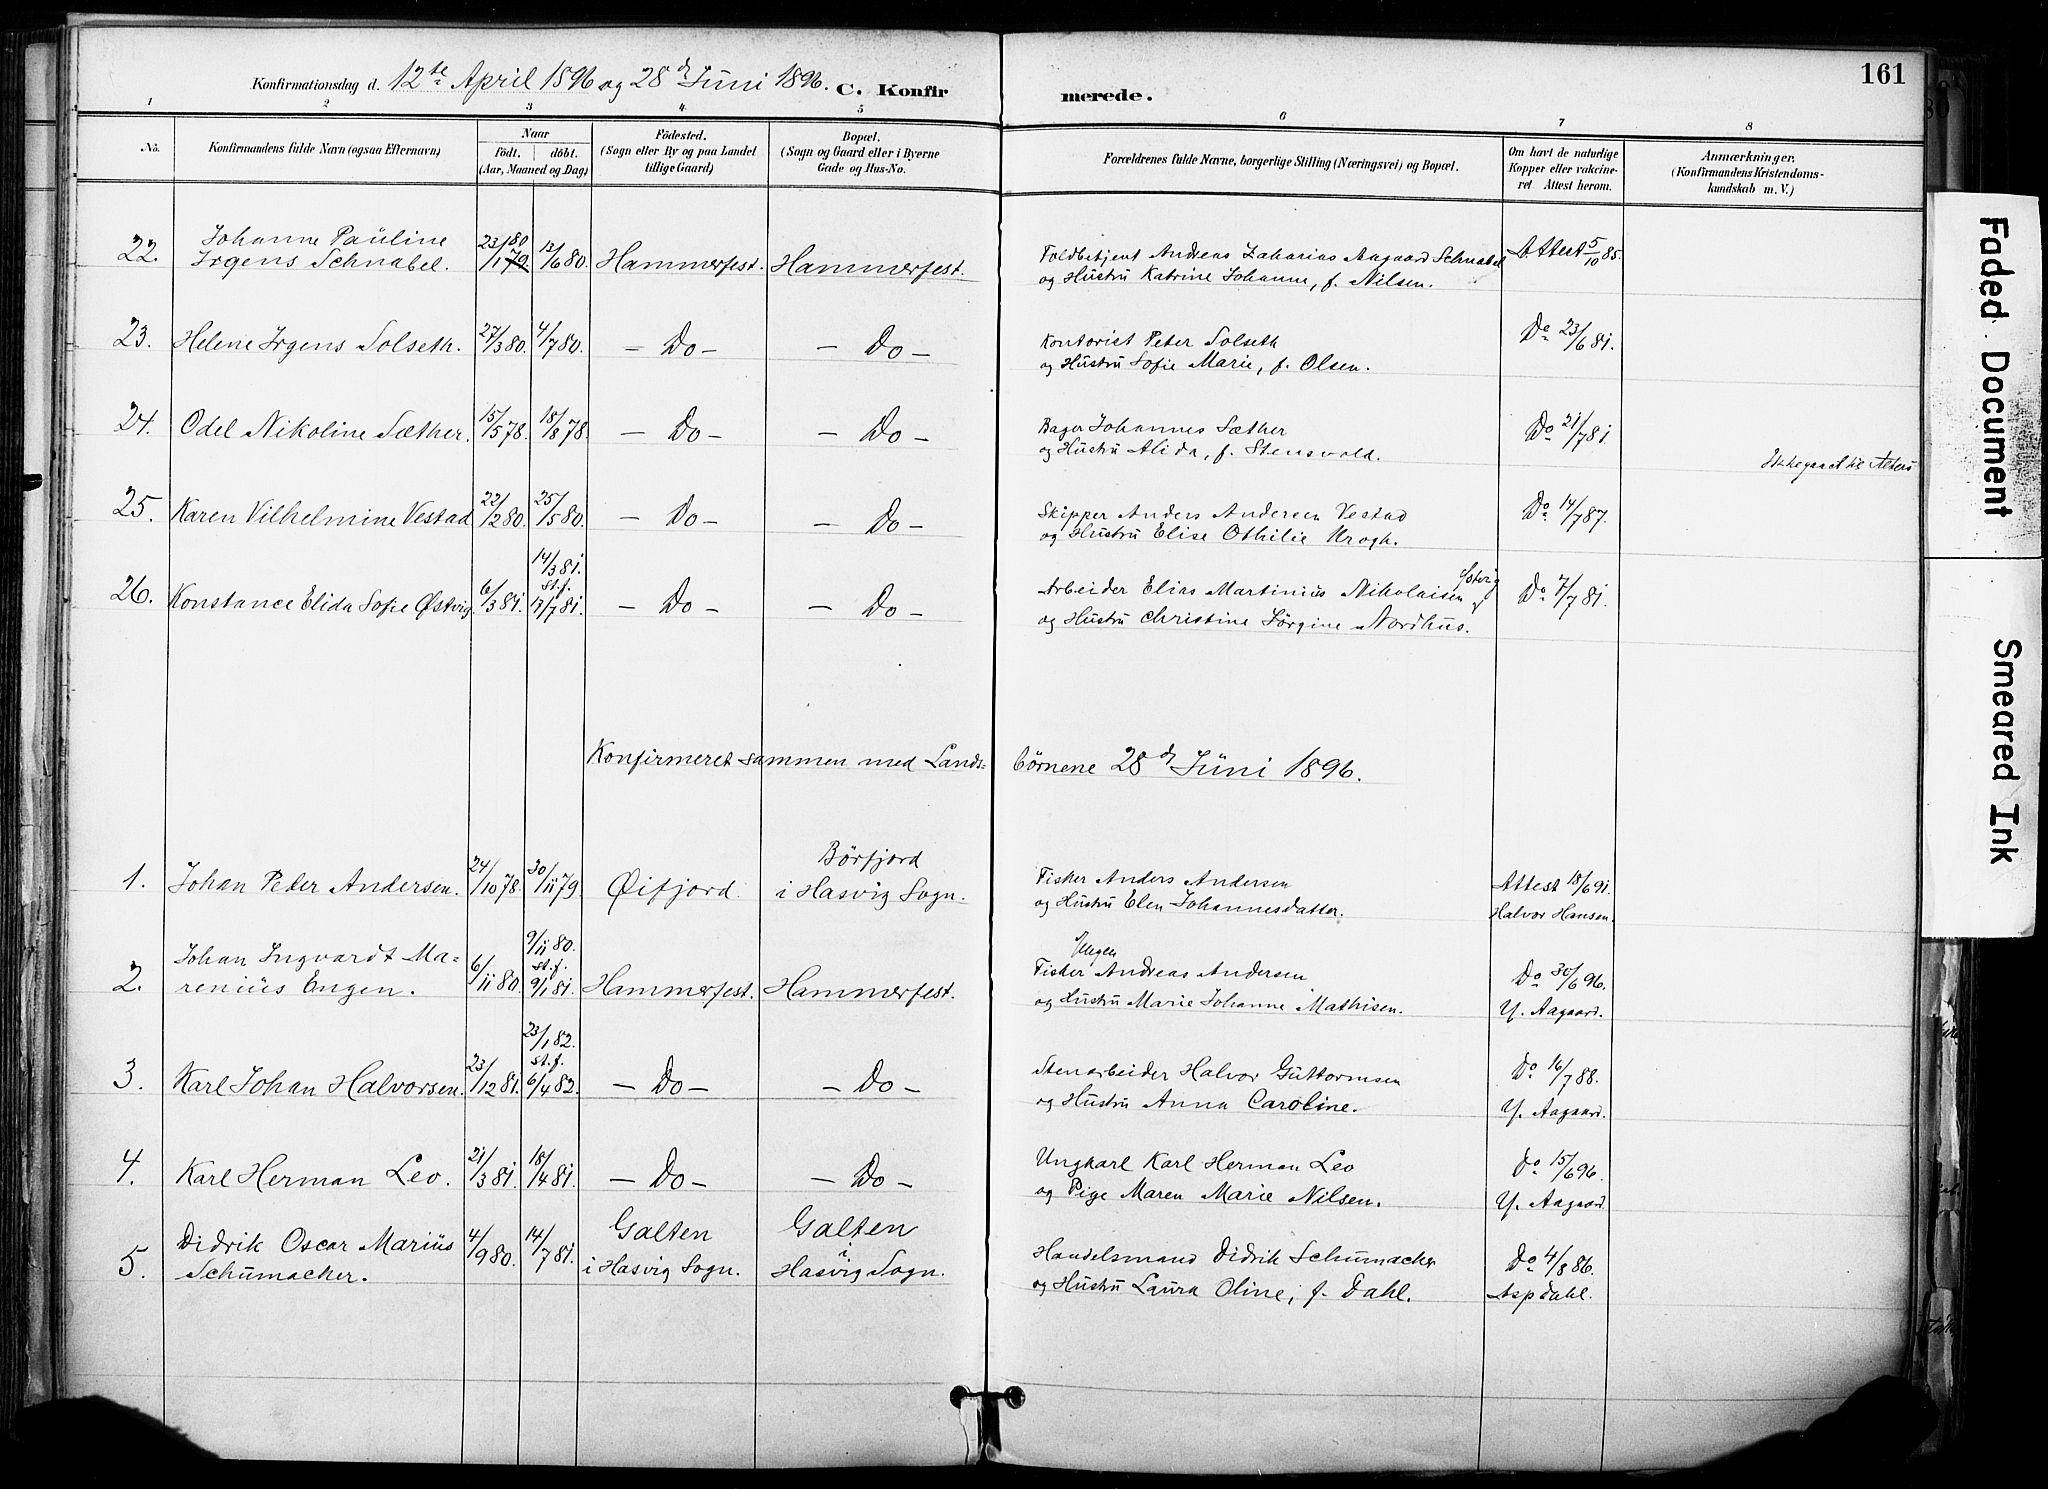 161
Konfirmationsdag d. 12te April 1896 og 28d Juni 1896. C. Konfirmerede.
1 2 3 4 5 6 7 8
No. Konfirmandens fulde Navn (ogsaa Efternavn) Naar födt. döbt. (Aar, Maaned og Dag) Födested. (Sogn eller By og paa Landet tillige Gaard) Bopæl. (Sogn og Gaard eller i Byerne Gade og Hus-No. Forældrenes fulde Navne, borgerlige Stilling (Næringsvei) og Bopæl. Om havt de naturlige Kopper eller vakcineret Attest herom. Anmærkninger. (Konfirmandens Kristendomskundskab m. V.)
22. Johanne Pauline Irgens Schnabel. 23/1 80 79 13/6 80. Hammerfest. Hammerfest. Toldbetjent Andreas Zakarias Aagaard Schnabel Attest 5/10 85.
og Hustru Katrine Johanne, f. Nilsen.
23. Helene Irgens Solseth. 27/3 80. 4/7 80. — Do — — Do — Kontorist Peter Solseth Do 23/6 81.
og Hustru Sofie Marie, f. Olsen.
24. Odel Nikoline Sæther. 15/5 78. 18/8 78. — Do — — Do — Bager Johannes Sæther Do 21/7 81
og Hustru Alida, f. Stensvold.
Ikke gaaet til Alters
25. Karen Vilhelmine Vestad 22/2 80. 25/5 80. — Do — — Do — Skipper Anders Andersen Vestad Do 14/7 87.
og Hustru Elise Othilie Krogh.
26. Konstance Elida Sofie Østvig 6/3 81. 14/3 81. st.f. 17/7 81. — Do — — Do — Arbeider Elias Martinius Nikolaisen Østvig Do 7/7 81.
og Hustru Christine Jørgine Nordhus.
Konfirmeret sammen med Lands-börnene 28d Juni 1896.
1. Johan Peder Andersen. 24/10 78. 30/11 79. Øifjord. Börfjord i Hasvig Sogn. Fisker Anders Andersen Attest 18/6 91.
og Hustru Elen Johannesdatter. Halvor Hansen.
2. Johan Ingvardt Marenius Engen. 6/11 80. 9/11 80. st.f. 9/1 81. Hammerfest. Hammerfest. Fisker Andreas Andersen Engen Do 30/6 96.
og Hustru Marie Johanne Mathisen. Y. Aagaard.
3. Karl Johan Halvorsen. 23/12 81. 23/1 82. st.f. 6/4 82. — Do — — Do — Stenarbeider Halvor Guttormsen Do 16/7 88.
og Hustru Anna Caroline. Y. Aagaard.
4. Karl Herman Leo. 21/3 81. 18/4 81. — Do — — Do — Ungkarl Karl Herman Leo Do 15/6 96.
og Pige Maren Marie Nilsen. Y. Aagaard
5. Didrik Oscar Marius Schumacher. 4/9 80. 14/7 81. Galten i Hasvig Sogn. Galten i Hasvig Sogn. Handelsmand Didrik Schumacher Do 4/8 86.
og Hustru Laura Oline, f. Dahl. Asp Dahl.
Faded Document
Smeared Ink